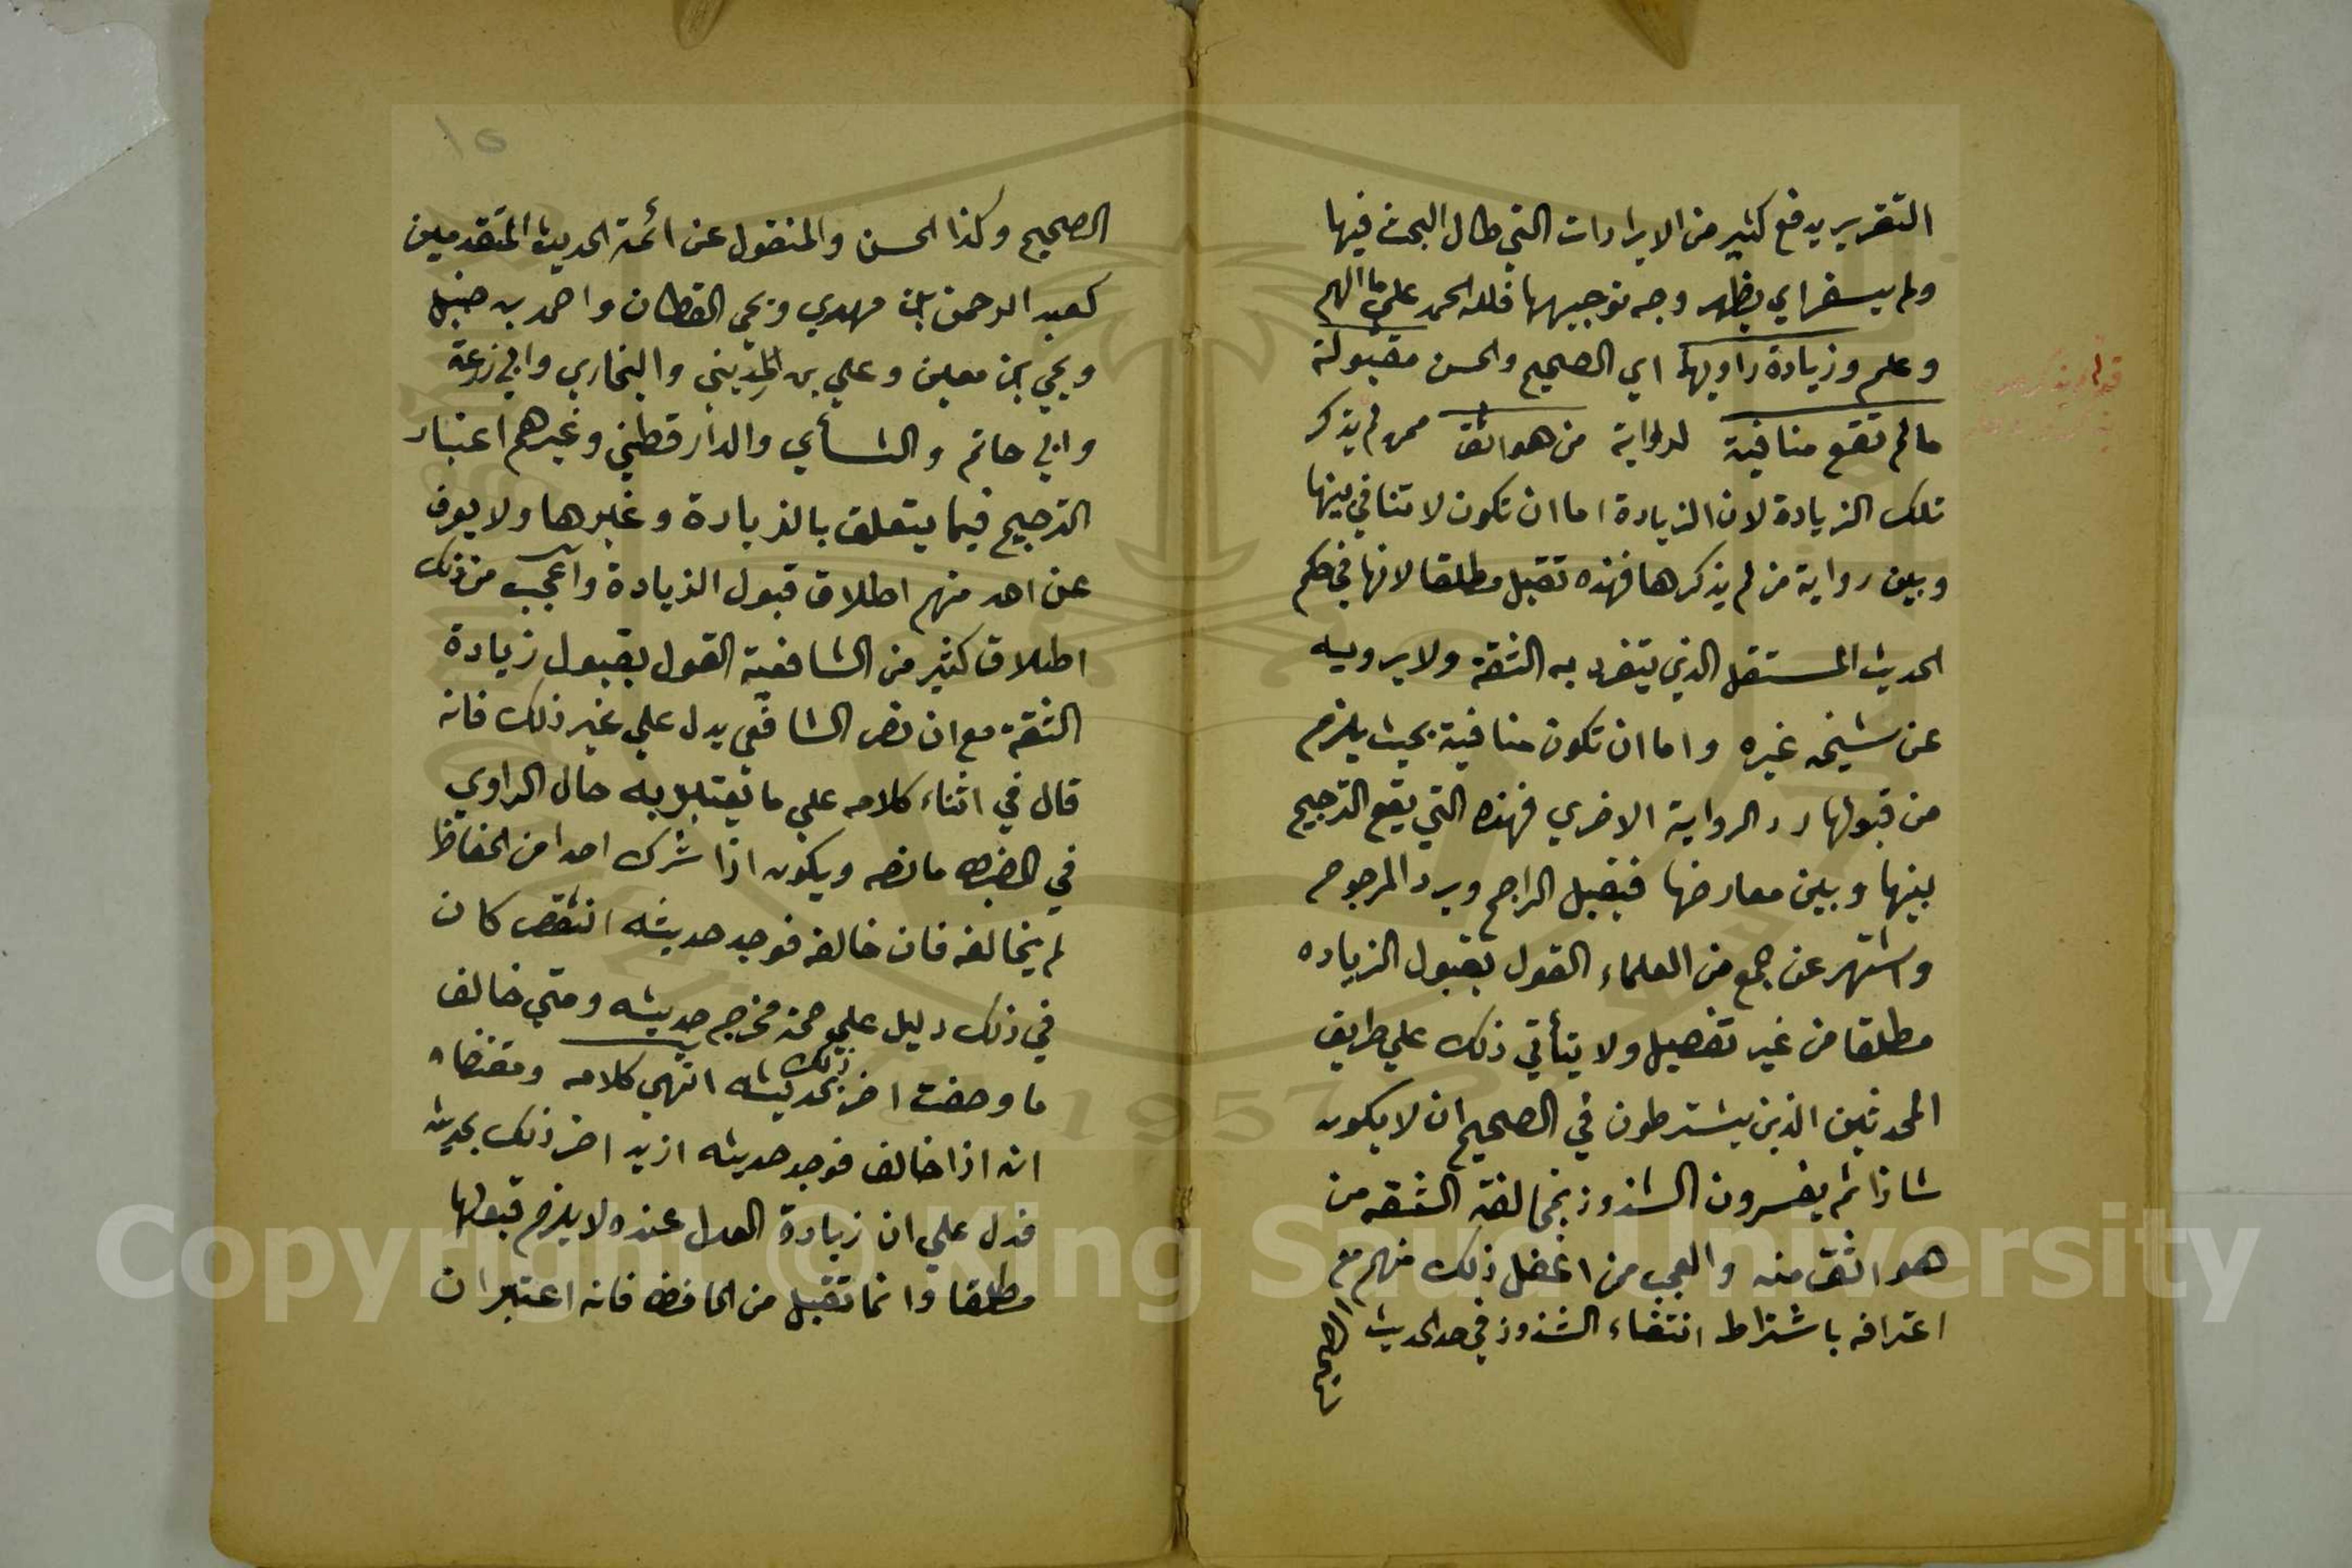 التقرير يدفع كثير من الايرادات التي طال البحث فيها
ولم يسفر اي يظهر وجه توجيهها فلله الحمد علي ما الهم
وعلم وزيادة راويهما اي الصحيح والحسن مقبولة
ما لم تقع منافية لرواية من هو اثق ممن لم يذكر
تلك الزيادة لان الزيادة اما ان تكون لا تنافي بينها
وبين رواية من لم يذكرها فهذه تقبل مطلقا لانها في حكم
الحديث المستقل الذي يتفرد به الثقة ولا يرويه
عن شيخه غيره واما ان تكون منافية بحيث يلزم
من قبولها رد الرواية الاخري فهذه التي يقع الترجيح
بينها وبين معارضها فيقبل الراجح ويرد المرجوح
واشتهر عن جمع من العلماء القول بقبول الزياده
مطلقا من غير تفصيل ولا يتأتي ذلك علي طريق
المحدثين الذين يشترطون في الصحيح ان لا يكون
شاذا ثم يفسرون الشذوذ بمخالفة الثقه من
هو اثق منه والعجب من اغفل ذلك منهم مع
اعترافه باشتراط انتفاء الشذوذ في حد الحديث
الصحيح
١٥
الصحيح وكذا الحسن والمنقول عن ائمة الحديث المتقدمين
كعبد الرحمن بن مهدي ويحي القطان واحمد بن حنبل
ويحي بن معين وعلي بن المديني والبخاري وابي زرعة
وابي حاتم والنسأي والدارقطني وغيرهم اعتبار
الترجيح فيما يتعلق بالزيادة وغيرها ولا يعرف
عن احد منهم اطلاق قبول الزيادة واعجب من ذلك
اطلاق كثير من الشافعية القول بقبول زيادة
الثقة مع ان نص الشافعي يدل علي غير ذلك فانه
قال في اثناء كلامه علي ما يعتبر به حال الراوي
في الضبط ما نصه ويكون اذا شرك احدا من الحفاظ
لم يخالفه فان خالفه فوجد حديثه انقص كان
في ذلك دليل علي صحة مخرج حديثه ومتي خالف
ما وصفت اضر ذلك بحديثه انتهي كلامه ومقتضاه
انه اذا خالف فوجد حديثه ازيد اضر ذلك بحديثه
فدل علي ان زيادة العدل عنده لا يلزم قبولها
مطلقا وانما تقبل من الحافظ فانه اعتبر ان
Copyright © King Saud University
1957